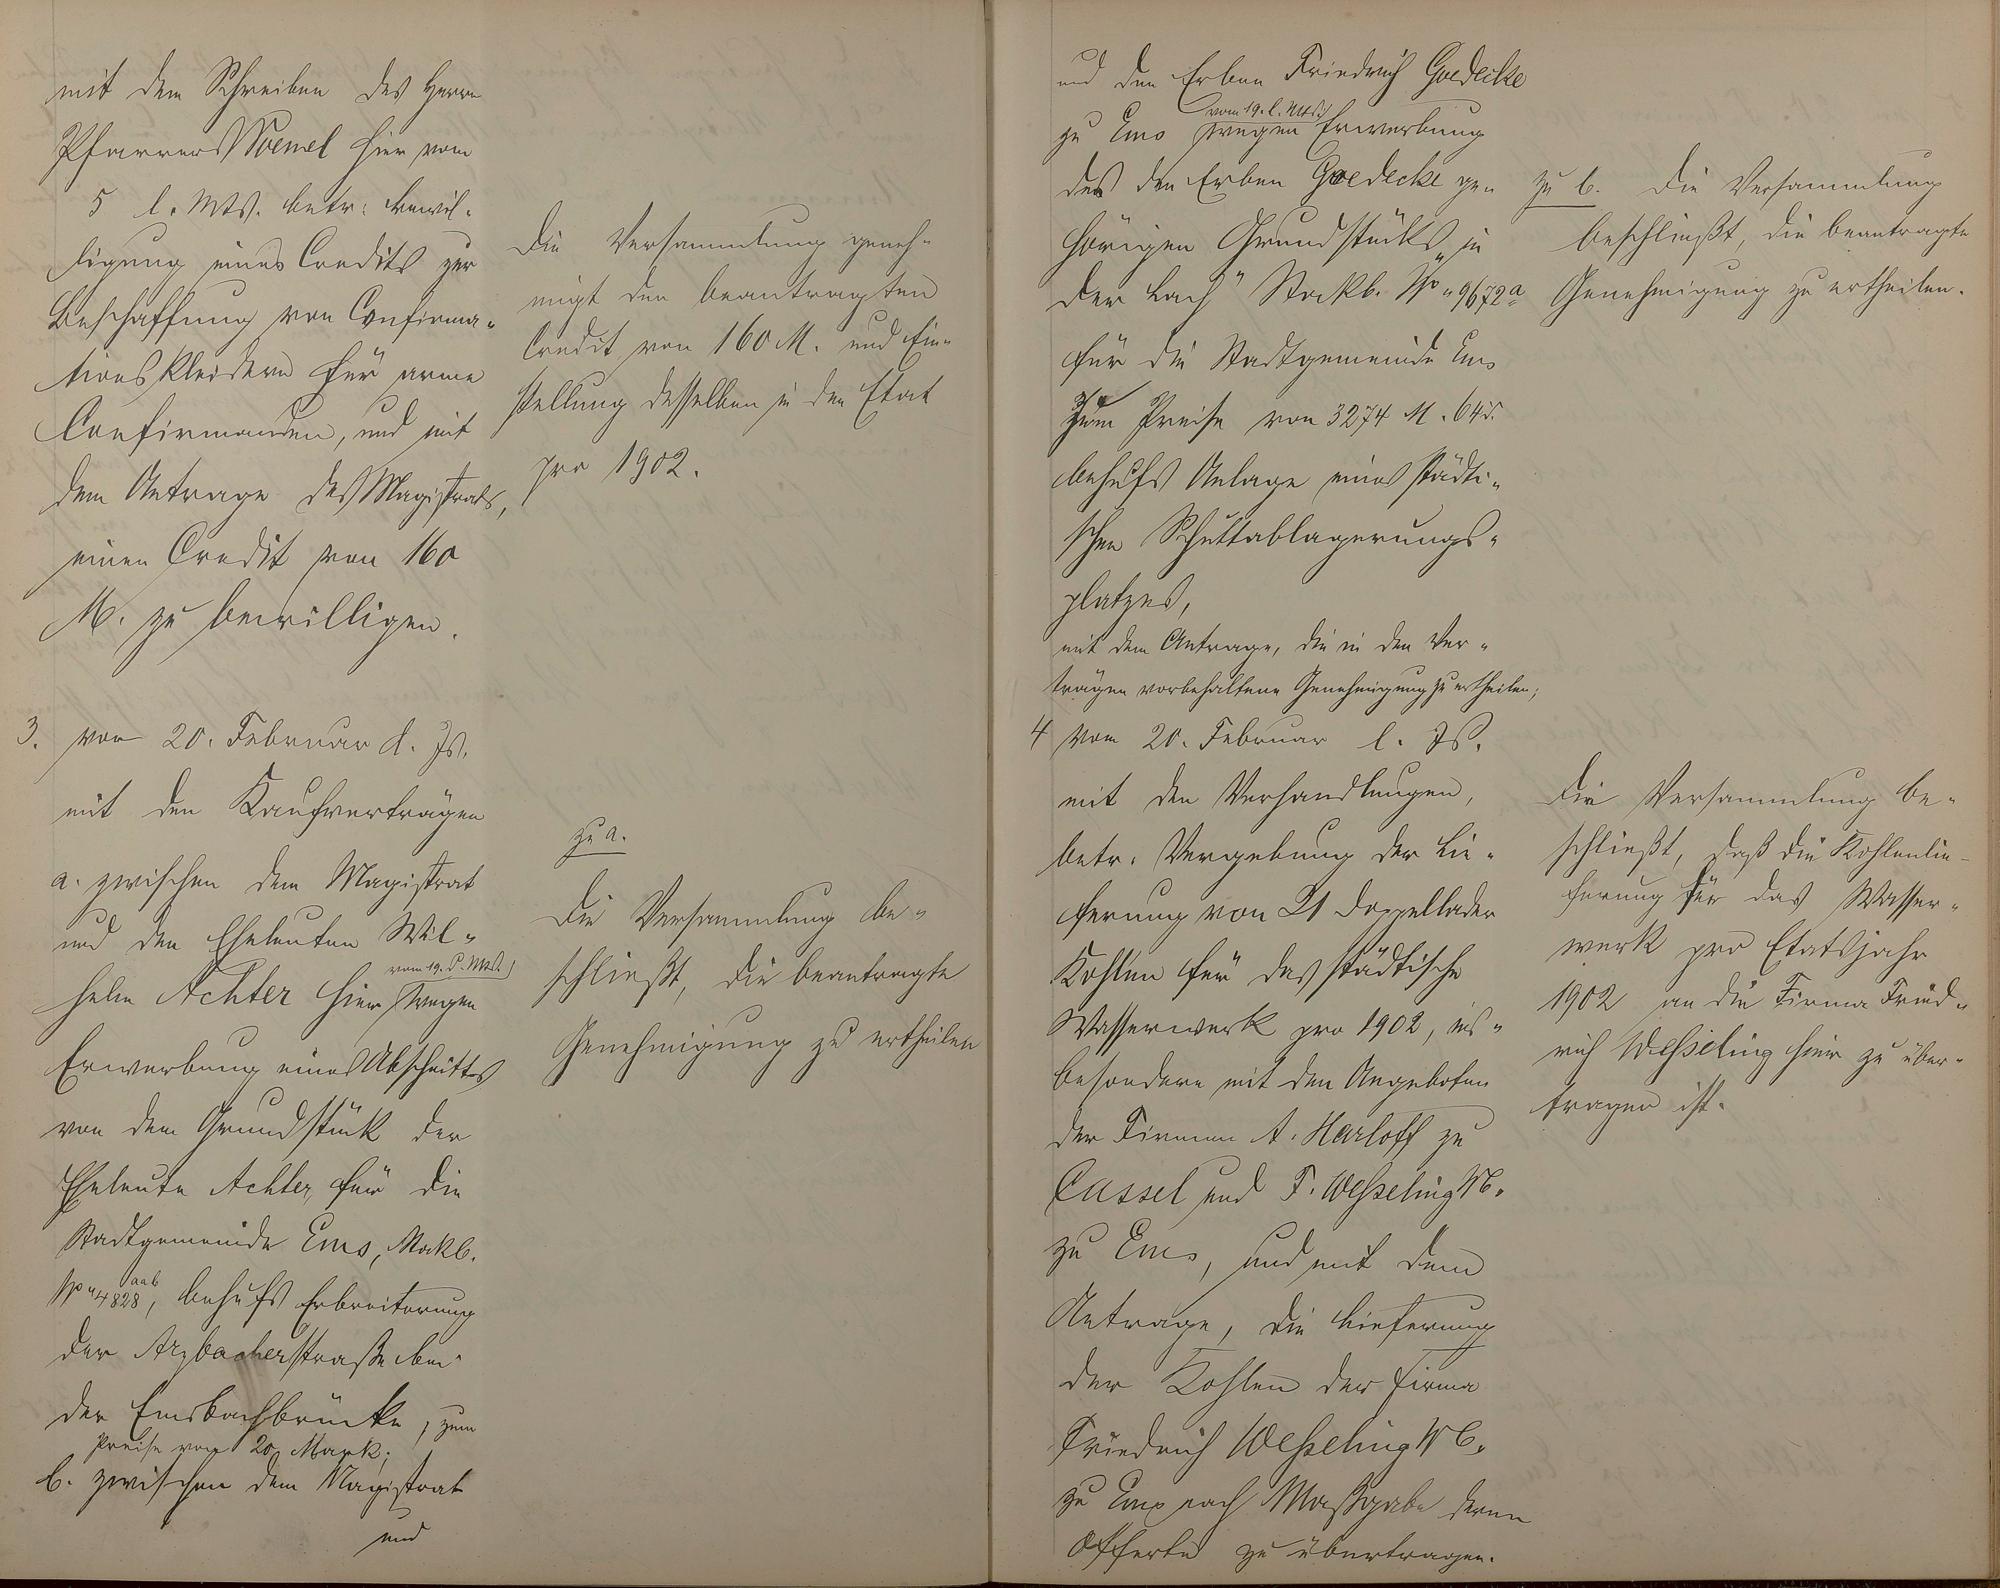 mit dem Schreiben des Herrn
Pfarrers Voemel hier vom
5 l. Mts. betr. Bewil-
ligung eines Credits zur
Beschaffung von Confirma-
tionskleidern für arme
Confirmanden, und mit
dem Antrage des Magistrats,
einen Credit von 160
M. zu bewilligen.
Die Versammlung geneh-
migt den beantragten
Credit von 160 M. und Ein-
stellung desselben in den Etat
pro 1902.
3. vom 20. Februar d. Js.
mit den Kaufverträgen
a. zwischen dem Magistrat
und den Eheleuten Wil-
vom 19. l. Mts.
helm Achter hier wegen
Erwerbung eines Abschnittes
von dem Grundstück der
Eheleute Achter, für die
Stadtgemeinde Ems, Stockb.
No 4828 aab, behufs Erbreiterung
der Arzbacherstraße bei
der Emsbachbrücke, zum
Preise von 20 Mark;
b. zwischen dem Magistrat
und
zu a.
Die Versammlung be-
schließt, die beantragte
Genehmigung zu ertheilen
und den Erben Friedrich Goedecke
vom 19. l. Mts.
zu Ems wegen Erwerbung
des den Erben Goedecke ge-
hörigen Grundstücks „in
der Lach" Stockb. No 9672a
für die Stadtgemeinde Ems
zum Preise von 3274 M. 64 d.
behufs Anlage eines städti-
schen Schuttablagerungs-
platzes,
mit dem Antrage, die in den Ver-
trägen vorbehaltene Genehmigung zu ertheilen;
zu b. Die Versammlung
beschließt, die beantragte
Genehmigung zu ertheilen.
4 vom 20. Februar l. Js.
mit den Verhandlungen,
betr. Vergebung der Lie-
ferung von 21 Doppellader
Kohlen für das städtische
Wasserwerk pro 1902, ins-
besondere mit den Angeboten
der Firmen A. Harloff zu
Cassel und F. Weßeling W.
zu Ems, und mit dem
Antrage, die Lieferung
der Kohlen der Firma
Friedrich Weßeling W.
zu Ems nach Maßgabe deren
Offerte zu übertragen.
Die Versammlung be-
schließt, daß die Kohlenlie-
ferung für das Wasser-
werk pro Etatsjahr
1902 an die Firma Fried-
rich Weßeling hier zu über-
tragen ist.